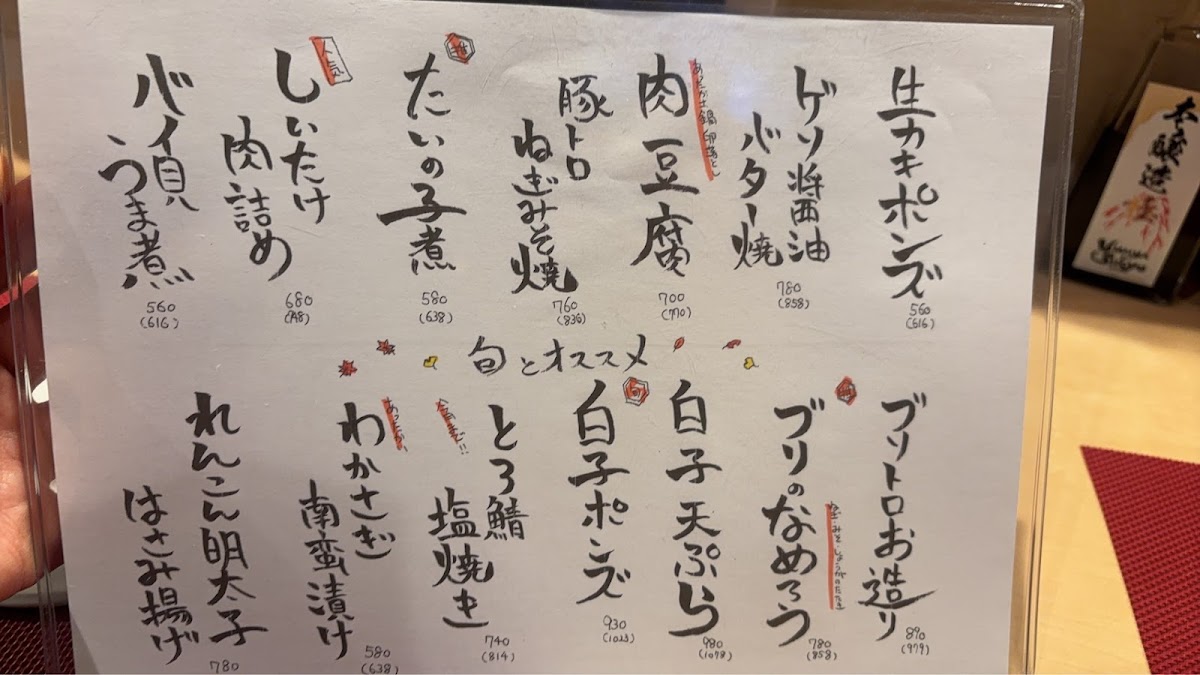 生カキポンズ
560
(616)
ゲソ醤油
バター焼
780
(858)
あったか土鍋 卵落とし
肉豆腐
700
(770)
豚トロ
ねぎみそ焼
760
(836)
たいの子煮
580
(638)
人気
しいたけ
肉詰め
680
(748)
バイ貝
うま煮
560
(616)
旬とオススメ
ブリトロお造り
890
(979)
ブリのなめろう
ねぎ・みそ・しょうがのたたき
780
(858)
白子天ぷら
980
(1078)
旬
白子ポンズ
930
(1023)
とろ鯖
塩焼き
740
(814)
わかさぎ
南蛮漬け
580
(638)
れんこん明太子
はさみ揚げ
780
本醸造